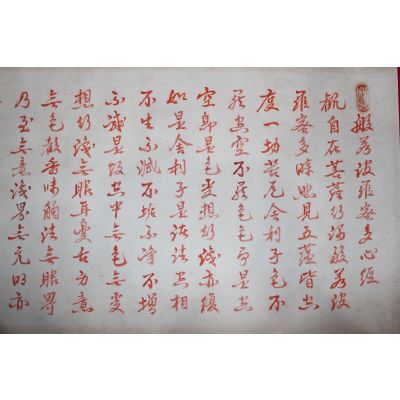 般若波羅密多心經
觀自在菩薩行深般若波
羅密多時照見五蘊皆空
度一切苦厄舍利子色不
異空空不異色色即是空
空即是色受想行識亦復
如是舍利子是諸法空相
不生不滅不垢不淨不增
不減是故空中無色無受
想行識無眼耳鼻舌身意
無色聲香味觸法無眼界
乃至無意識界無無明亦